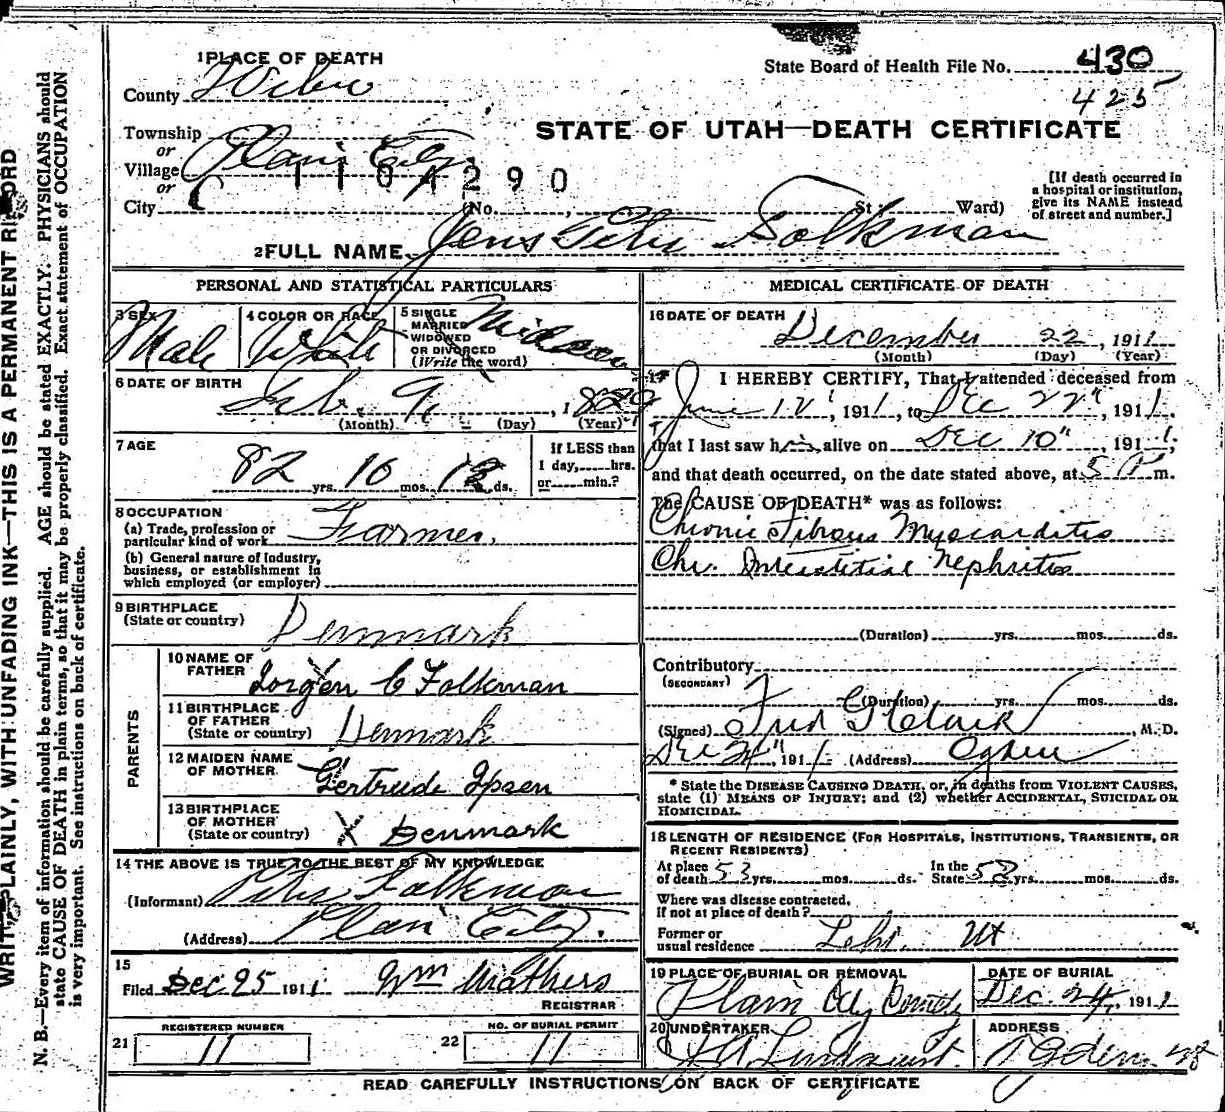 WRITE PLAINLY, WITH UNFADING INK—THIS IS A PERMANENT RECORD
N. B.—Every item of information should be carefully supplied. AGE should be stated EXACTLY. PHYSICIANS should
state CAUSE OF DEATH in plain terms, so that it may be properly classified. Exact statement of OCCUPATION
is very important. See instructions on back of certificate.
1 PLACE OF DEATH
State Board of Health File No. 430
425
County Weber
STATE OF UTAH—DEATH CERTIFICATE
Township
or
Village Plain City
or
City (No. St. Ward)
[If death occurred in
a hospital or institution,
give its NAME instead
of street and number.]
2 FULL NAME Jens Peter Folkman
PERSONAL AND STATISTICAL PARTICULARS
3 SEX Male
4 COLOR OR RACE White
5 SINGLE
MARRIED
WIDOWED
OR DIVORCED
(Write the word)
6 DATE OF BIRTH Feb. 9, 1829
(Month) (Day) (Year)
7 AGE 82 yrs. 10 mos. 13 ds.
If LESS than
1 day, hrs.
or min.?
8 OCCUPATION
(a) Trade, profession or
particular kind of work Farmer.
(b) General nature of industry,
business, or establishment in
which employed (or employer)
9 BIRTHPLACE
(State or country) Denmark
PARENTS
10 NAME OF
FATHER Jorgen C Folkman
11 BIRTHPLACE
OF FATHER
(State or country) Denmark
12 MAIDEN NAME
OF MOTHER Gertrude Ipsen
13 BIRTHPLACE
OF MOTHER
(State or country) X Denmark
14 THE ABOVE IS TRUE TO THE BEST OF MY KNOWLEDGE
(Informant) Peter Folkman
(Address) Plain City.
15
Filed Dec 25 1911 Wm Mathers
REGISTRAR
REGISTERED NUMBER
21 11
NO. OF BURIAL PERMIT
22 11
MEDICAL CERTIFICATE OF DEATH
16 DATE OF DEATH December 22, 1911
(Month) (Day) (Year)
17 I HEREBY CERTIFY, That I attended deceased from
June 12, 1911, to Dec 22", 1911.
that I last saw him alive on Dec 10", 1911.
and that death occurred, on the date stated above, at 5 P m.
The CAUSE OF DEATH* was as follows:
Chronic Fibrous Myocarditis
Chr. Interstitial Nephritis
(Duration) yrs. mos. ds.
Contributory
(SECONDARY)
(Duration) yrs. mos. ds.
(Signed) Fred G Clark, M. D.
Dec 24", 1911 (Address) Ogden
* State the DISEASE CAUSING DEATH, or, in deaths from VIOLENT CAUSES,
state (1) MEANS OF INJURY; and (2) whether ACCIDENTAL, SUICIDAL OR
HOMICIDAL.
18 LENGTH OF RESIDENCE (FOR HOSPITALS, INSTITUTIONS, TRANSIENTS, OR
RECENT RESIDENTS)
At place
of death 53 yrs. mos. ds.
In the
State 53 yrs. mos. ds.
Where was disease contracted,
if not at place of death?
Former or
usual residence Lehi. Ut
19 PLACE OF BURIAL OR REMOVAL
Plain City
DATE OF BURIAL
Dec. 24, 1911
20 UNDERTAKER
Lindquist.
ADDRESS
Ogden
READ CAREFULLY INSTRUCTIONS ON BACK OF CERTIFICATE